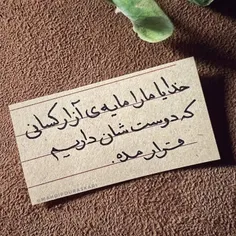 خدایا ما را مایه ی آزار کسانی
که دوست شان داریم
قرار مده.